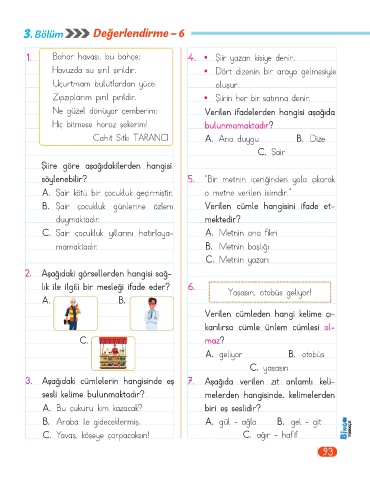 3. Bölüm Değerlendirme – 6
1. Bahar havası, bu bahçe;
Havuzda su şırıl şırıldır.
Uçurtmam bulutlardan yüce
Zıpzıplarım pırıl pırıldır.
Ne güzel dönüyor çemberim;
Hiç bitmese horoz şekerim!
Cahit Sıtkı TARANCI
Şiire göre aşağıdakilerden hangisi
söylenebilir?
A. Şair kötü bir çocukluk geçirmiştir.
B. Şair çocukluk günlerine özlem
duymaktadır.
C. Şair çocukluk yıllarını hatırlaya-
mamaktadır.
2. Aşağıdaki görsellerden hangisi sağ-
lık ile ilgili bir mesleği ifade eder?
A. B.
C.
3. Aşağıdaki cümlelerin hangisinde eş
sesli kelime bulunmaktadır?
A. Bu çukuru kim kazacak?
B. Araba ile gideceklermiş.
C. Yavaş, köşeye çarpacaksın!
4. • Şiir yazan kişiye denir.
• Dört dizenin bir araya gelmesiyle
oluşur.
• Şiirin her bir satırına denir.
Verilen ifadelerden hangisi aşağıda
bulunmamaktadır?
A. Ana duygu B. Dize
C. Şair
5. "Bir metnin içeriğinden yola çıkarak
o metne verilen isimdir."
Verilen cümle hangisini ifade et-
mektedir?
A. Metnin ana fikri
B. Metnin başlığı
C. Metnin yazarı
6. Yaşasın, otobüs geliyor!
Verilen cümleden hangi kelime çı-
karılırsa cümle ünlem cümlesi ol-
maz?
A. geliyor B. otobüs
C. yaşasın
7. Aşağıda verilen zıt anlamlı keli-
melerden hangisinde, kelimelerden
biri eş seslidir?
A. gül - ağla B. gel - git
C. ağır - hafif
93